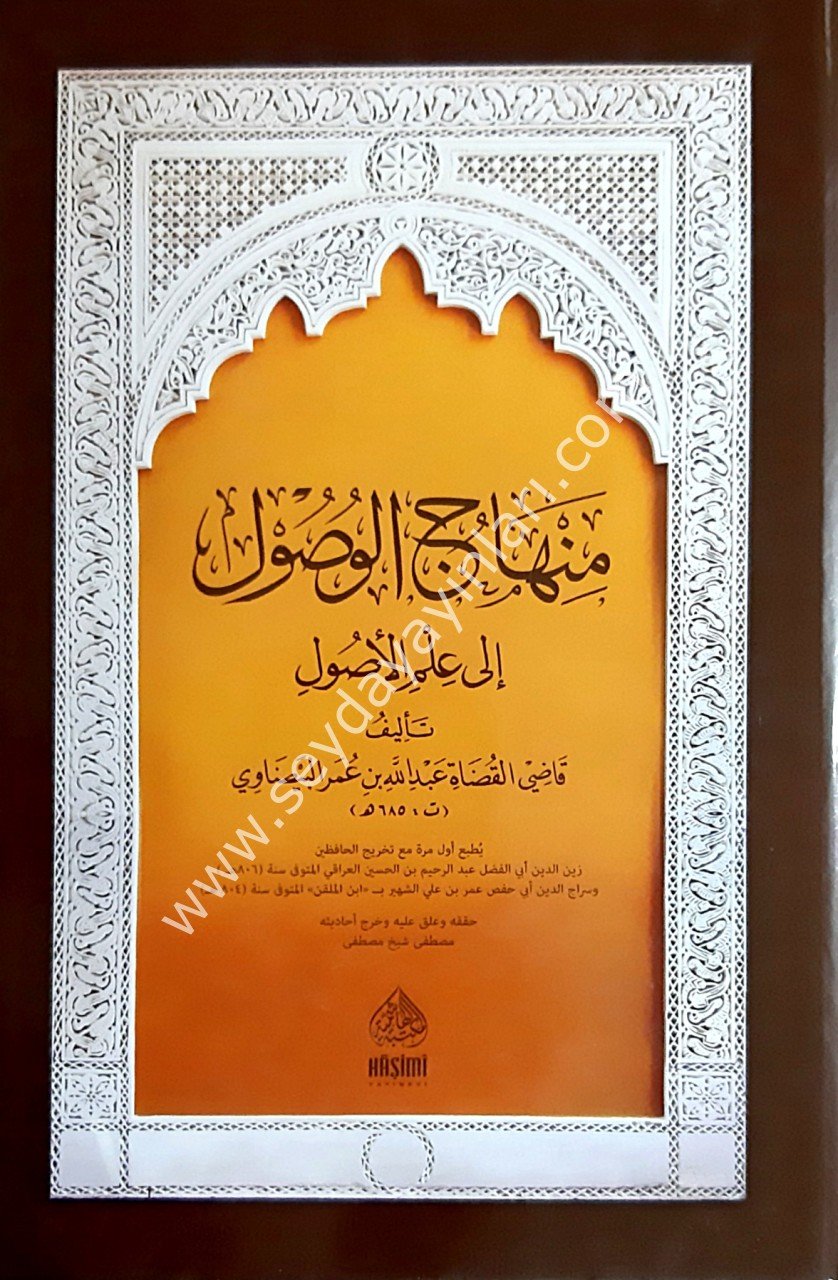 مِنْهَاجُ الْوُصُول
إِلَى عِلْمِ الْأُصُولِ
تَأْلِيفُ
قَاضِي الْقُضَاة عَبْدِ اللَّهِ بْنِ عُمَر الْبَيْضَاوِي
(ت: ٦٨٥ هـ)
يُطبع أول مرة مع تخريج الحافظين
زين الدين أبي الفضل عبد الرحيم بن الحسين العراقي المتوفى سنة (٨٠٦
وسراج الدين أبي حفص عمر بن علي الشهير بـ «ابن الملقن» المتوفى سنة (٨٠٤
حققه وعلق عليه وخرج أحاديثه
مصطفى شيخ مصطفى
المكتبة الهاشمية
HÂŞİMÎ
YAYINEVİ
www.seydayayınları.com